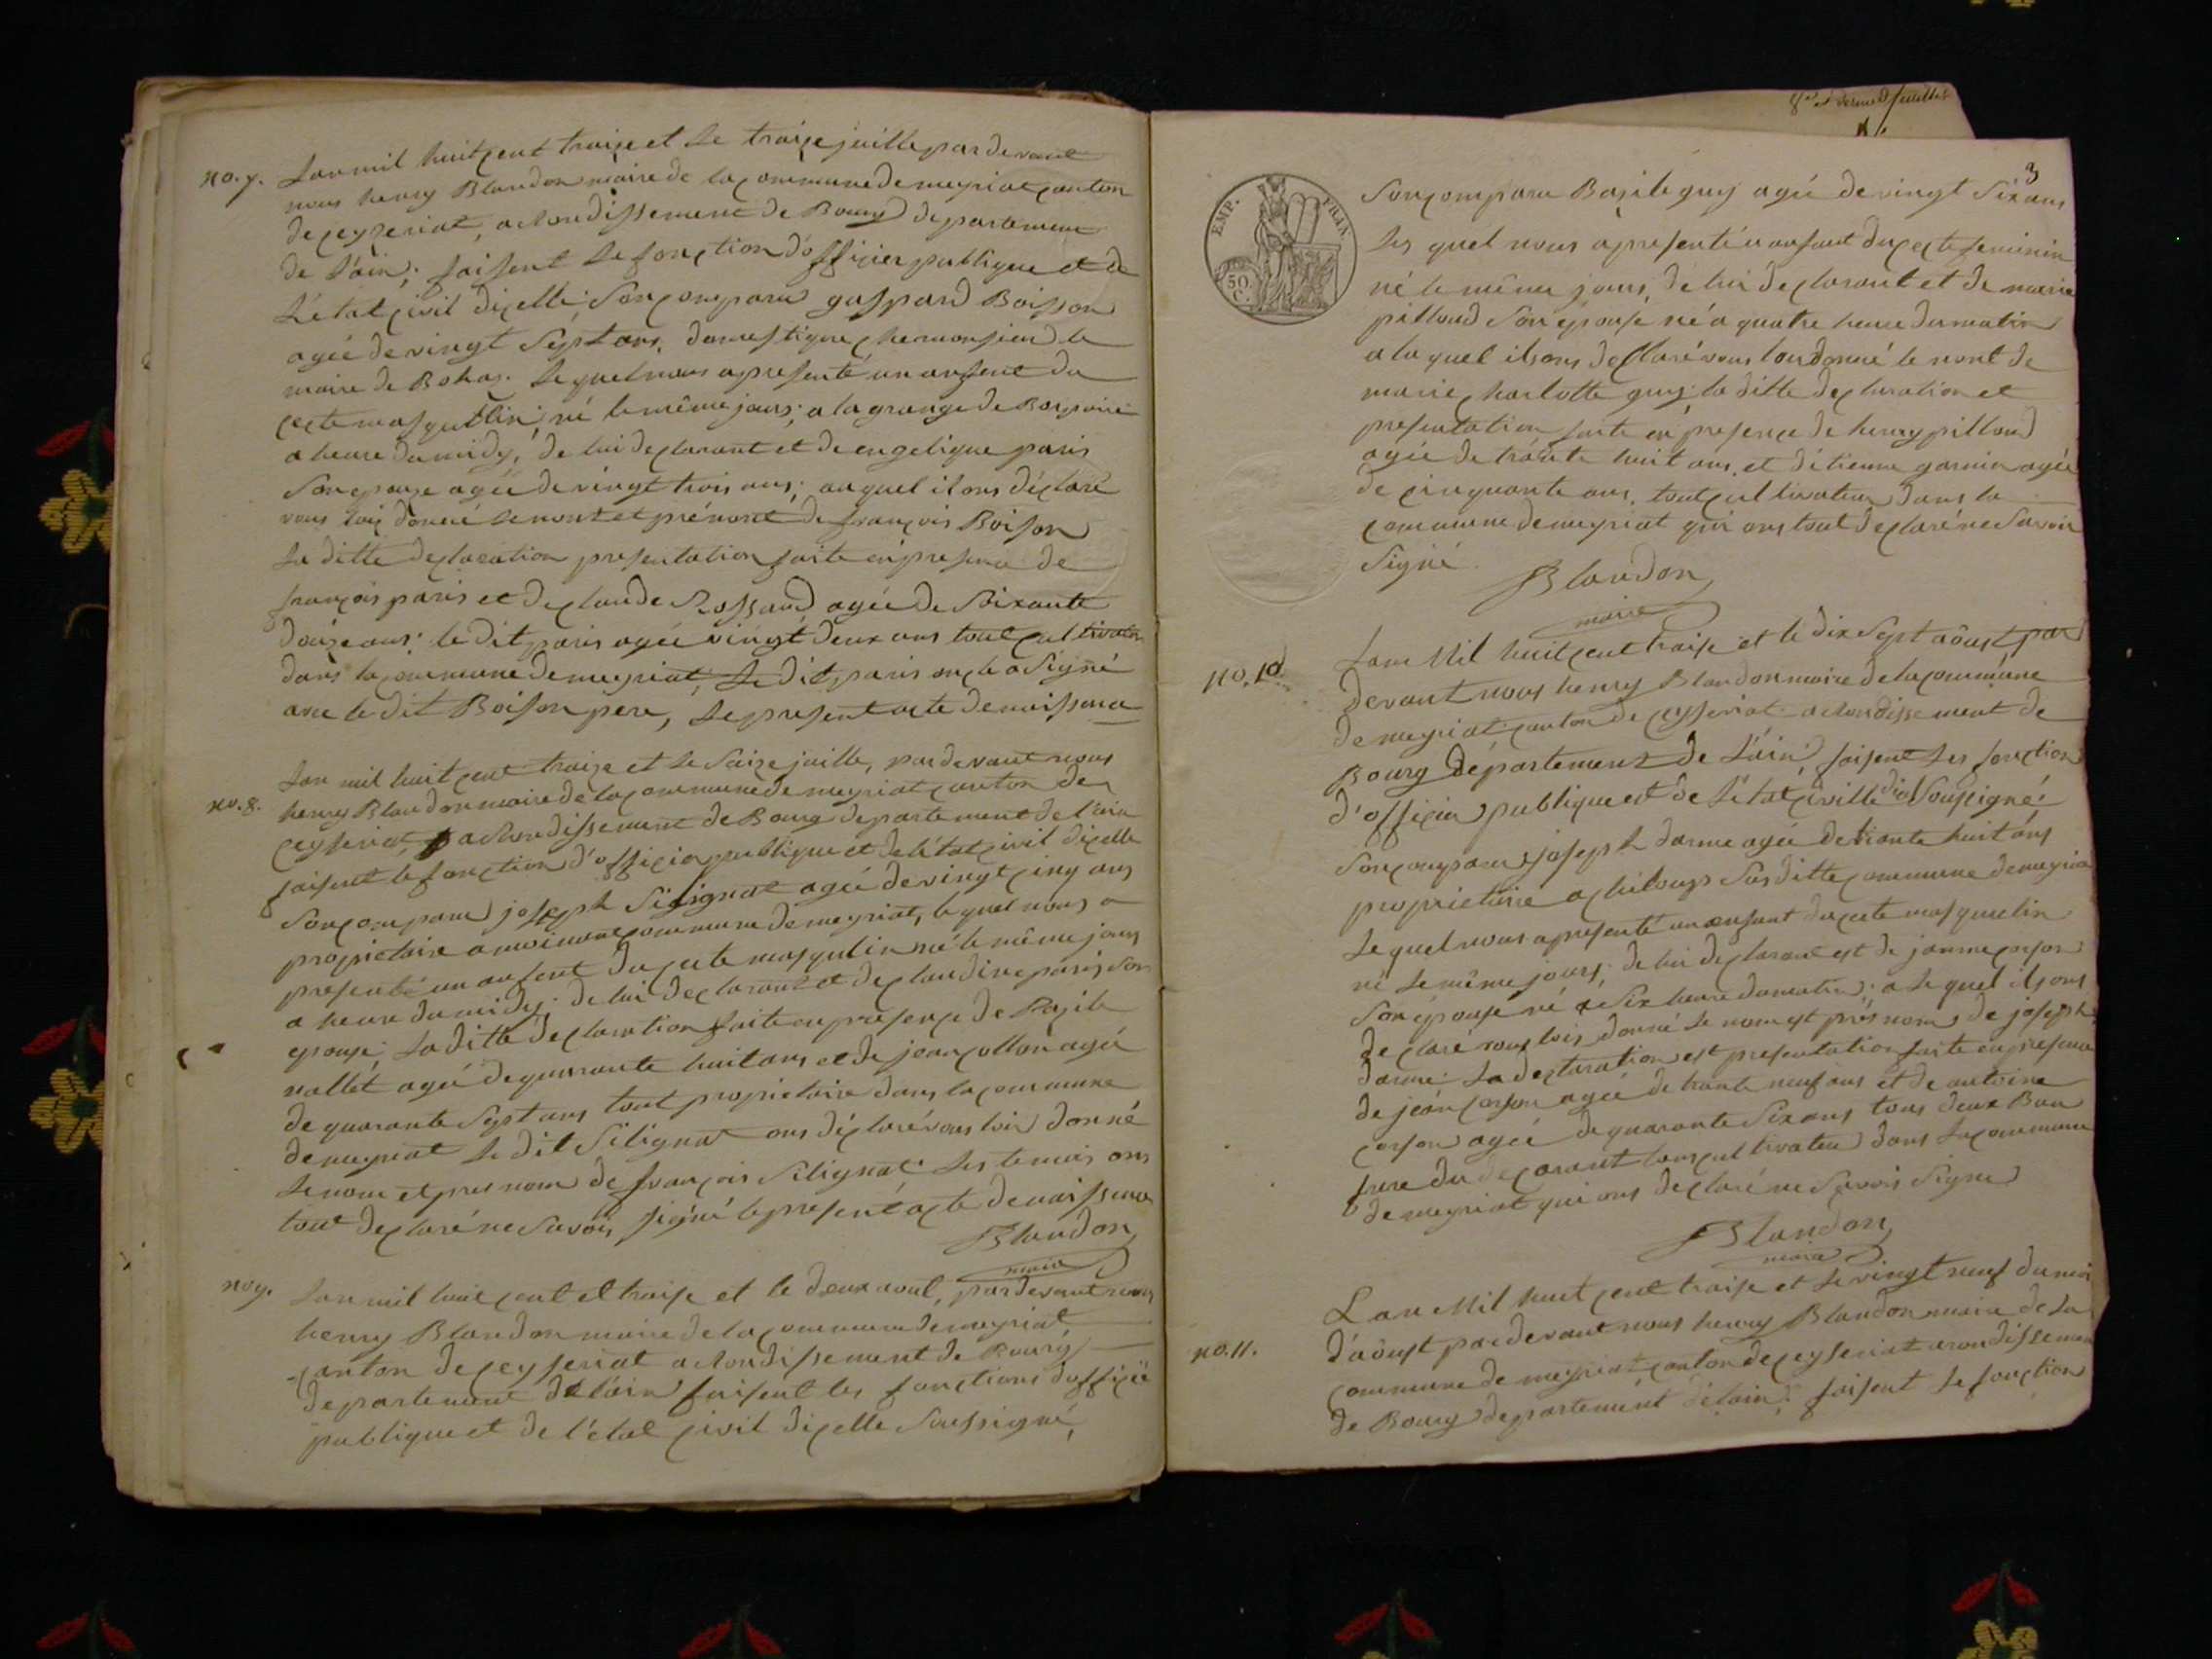 no. 7. Lan mil huit cent traize et le traize juille par devant
nous henry Blandon maire de la commune de meyriat canton
de ceyzeriat, arrondissement de Bourg departement
de l'ain; faisent le fonction d'officier publique et de
L'état civil dicelle; Son comparu gaspard Boisson
agée de vingt Sept ans, domestique che monsieur le
maire de Bohas. Le quel nous a presenté un anfent du
cexte masqullin; né le même jours; a la grange de
a heure du midy, de lui declarant et de engelique paris
Son epouze agée de vingt trois ans; au quel il ons déclaré
vous loir donné le nont et prénont de françois Boison
La ditte declaration presentation faite en presence de
françois paris et de claude Rossand agée de Soixante
douze ans; le dit paris agée vingt deux ans tout cultivateur
dans la commune de meyriat, Le dit paris on le a Signé
avec le dit Boison pere, Le present acte de naissance
no. 8. Lan mil huit cent traize et le Saize juille, par devant nous
henry Blandon maire de la commune de meyriat canton de
ceyseriat arrondissement de Bourg departement de l'ain
faisent le fonction d'officier publique et de l'état civil dicelle
Son comparu joseph Silignat agée de vingt cinq ans
propriétaire a moinona commune de meyriat, le quel nous a
presenté un anfent du cexte masqulin né le même jours
a heure du midy; de lui declarant et de claudine paris Son
epouse; La ditte declaration faite en presence de Bazile
vallet agée de quarante huit ans et de jean collon agée
de quarante Sept ans tout proprietaire dans la commune
de meyriat Le dit Silignat ons déclaré vous loir donné
Le nom et pres nom de françois Silignat Les temois ons
tout declaré ne Savoir Signé le present acte de naissance
Blandon
maire
no 9. Lan mil huit cent et traise et le deux aout, par devant nous
henry Blandon maire de la commune de meyriat
canton de ceyseriat arrondissement de Bourg
departement de l'ain faisent les fonctions d'officie
publique et de l'état civil dicelle Soussigné,
3
EMP. FRAN
50 C.
Son comparu Bazile guy agée de vingt Six ans
Les quel nous a presenté un anfant du cexte feminin
né le même jours, de lui declarant et de marie
pilloud Son epouse né a quatre heure du matin
a la quel ils ons declaré vous loir donné le nont de
marie charlotte guy; la ditte declaration et
presentation faite en presence de henry pilloud
agée de trante huit ans, et détienne garnier agée
de cinquante ans, tout cultivateur dans la
commune de meyriat qui ons tout declaré ne Savoir
Signé
Blandon
maire
no. 10 Lan Mil huit cent traise et le dix Sept aôust par
devant nous henry Blandon maire de la commune
de meyriat canton de ceyseriat arrondissement de
Bourg département de L'ain faisent Les fonction
d'officier publique et de L'état civille Soussigné
Son comparu joseph darme agée de trante huit ans
proprietaire a chiloup Sus ditte commune de meyriat
Le quel nous a presenté un enfant du cexte masquelin
né Le même jours; de lui declarant est de janne
Son épouse né a Six heure du matin; a Le quel ils ons
declaré vous loir donné Le nom est prés nom de joseph
darme. La declaration est presentation faite en presence
de jean agée de trante neuf ans et de antoine
agée de quarante Six ans tous deux Bau
frere du decarant tous cultivateur dans La commune
de meyriat qui ons declaré ne Savoir Signé
Blandon
maire
no. 11. Lan Mil huit cent traise et Le vingt neuf du moi
d'aôust par devant nous henry Blandon maire de La
commune de meyriat canton de ceyseriat arondissement
de Bourg departement de lain; faisent Le fonction